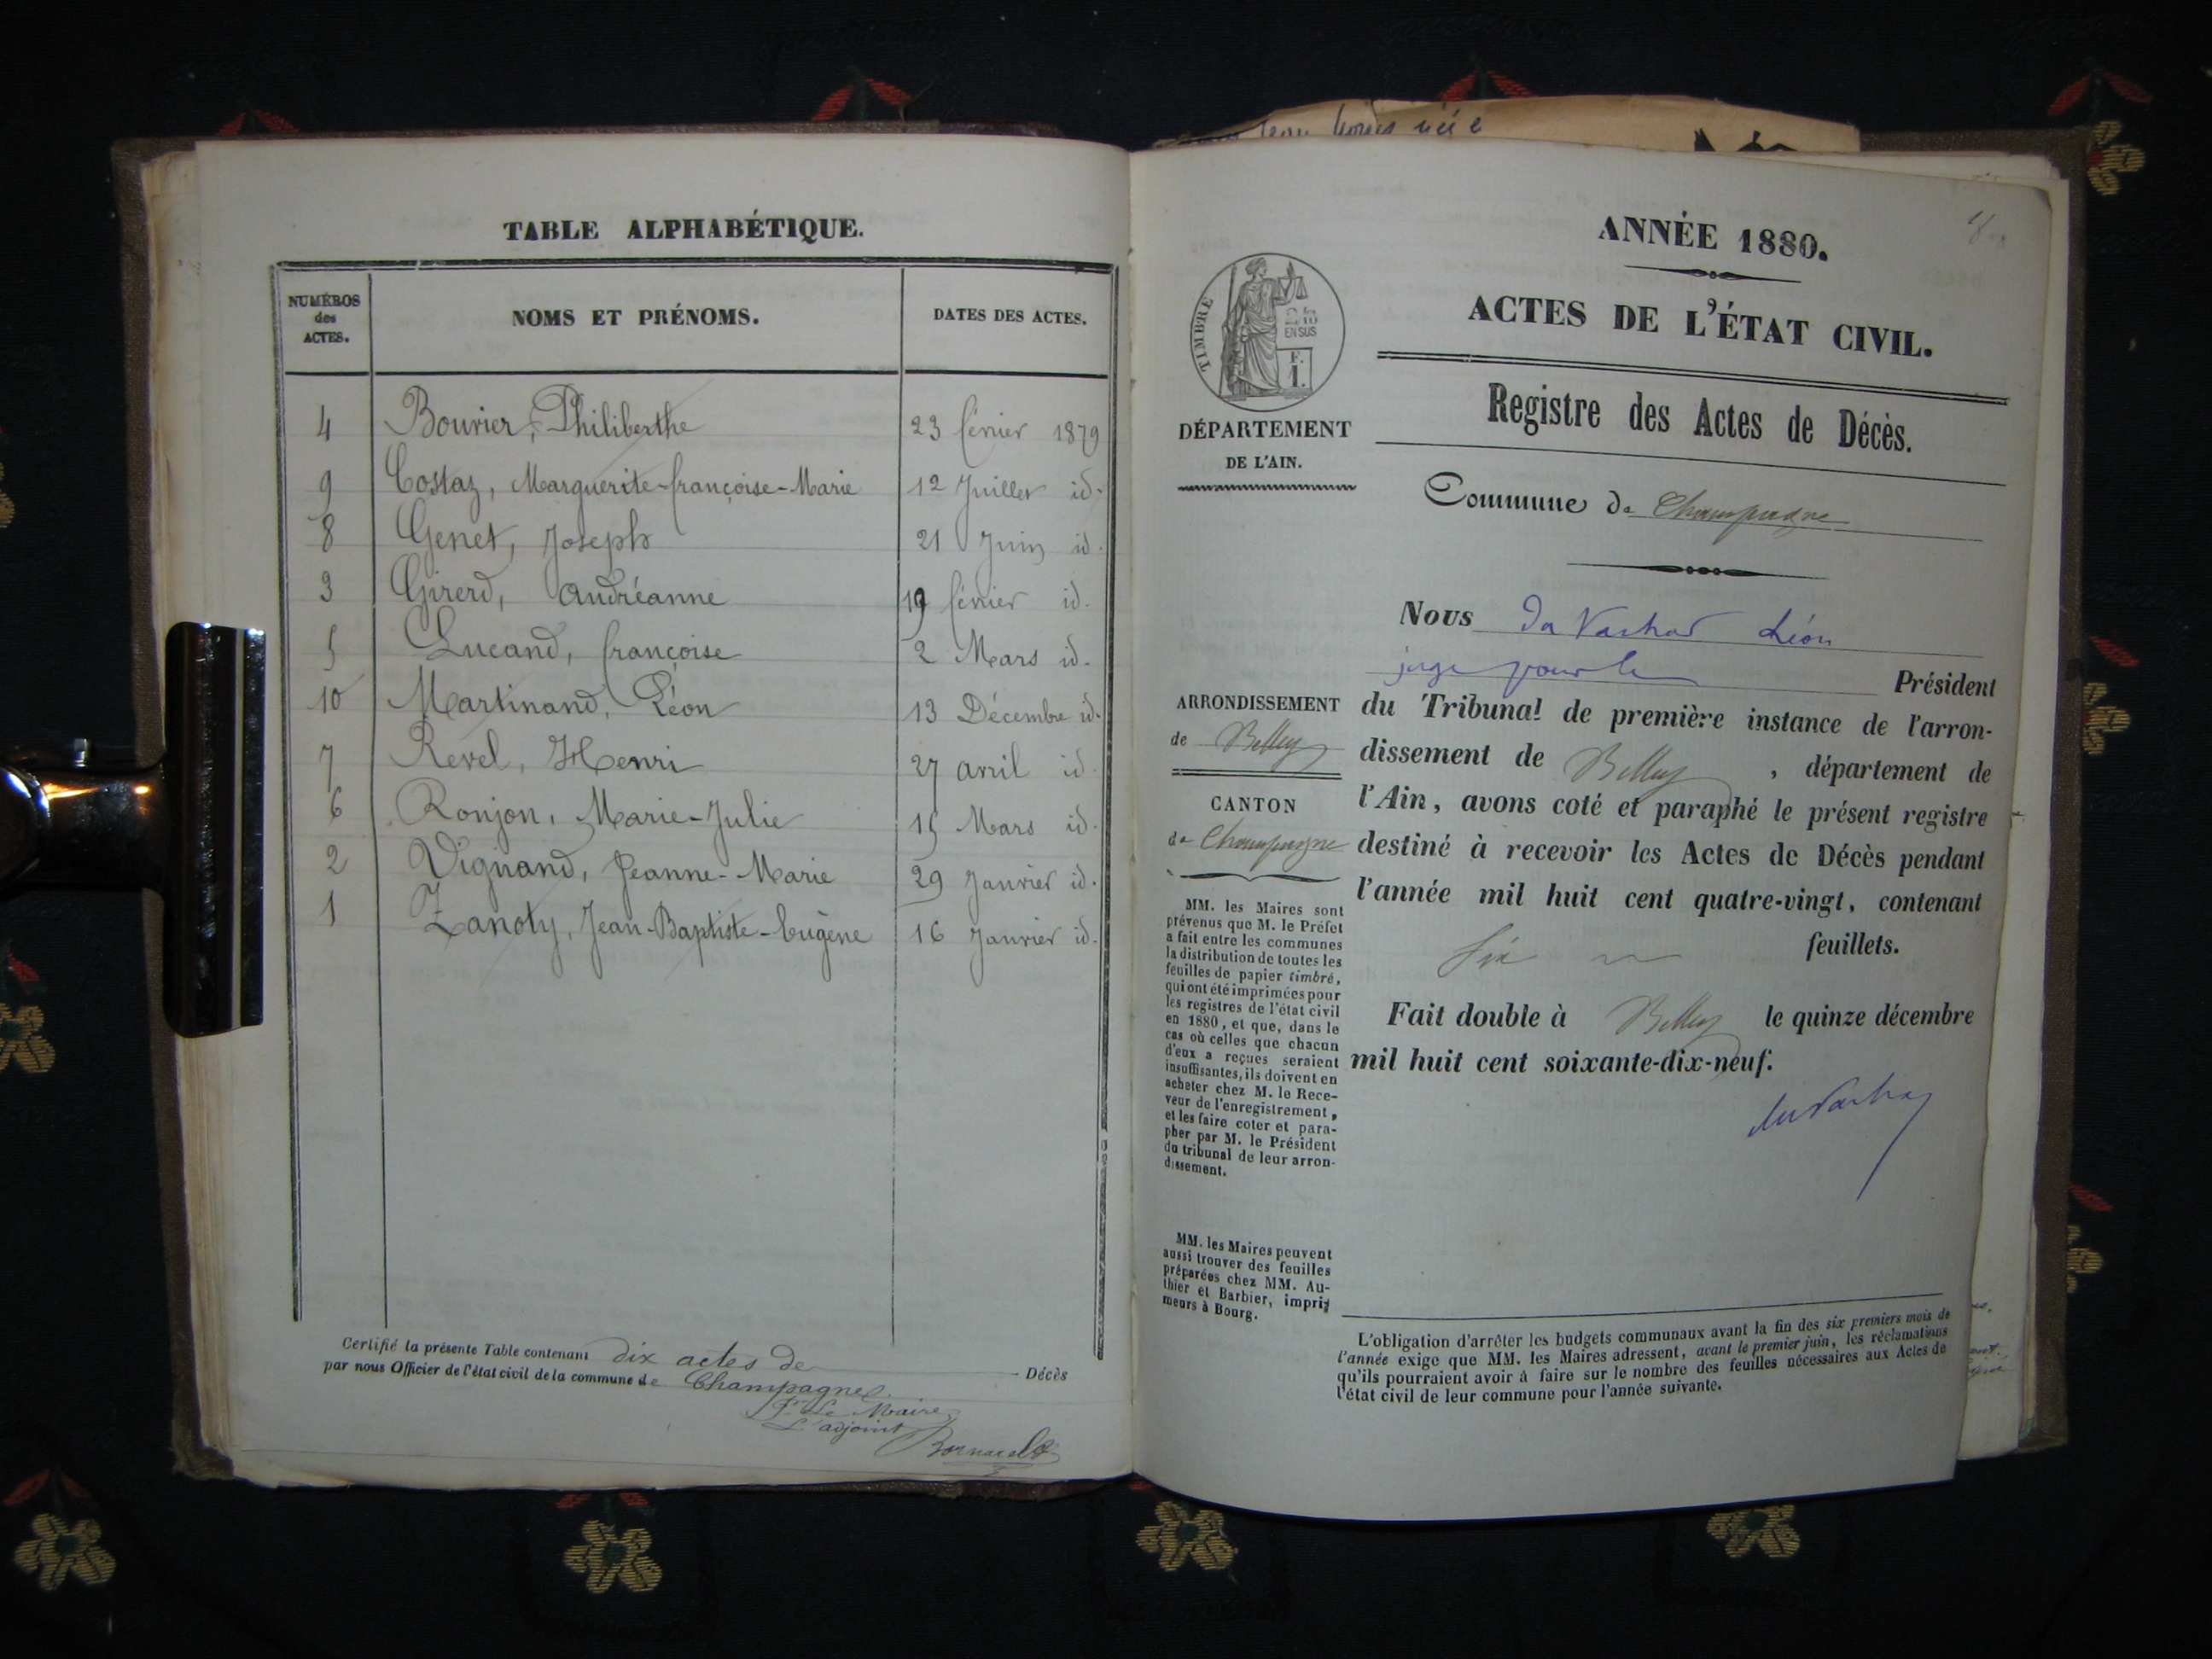 TABLE ALPHABÉTIQUE.
NUMÉROS des ACTES.
NOMS ET PRÉNOMS.
DATES DES ACTES.
4 Bouvier, Philiberthe 23 février 1879
9 Costaz, Marguerite-françoise-Marie 12 Juillet id.
8 Genet, Joseph 21 Juin id.
3 Girerd, Andréanne 19 février id.
5 Lucand, françoise 2 Mars id.
10 Martinand, Léon 13 Décembre id.
7 Revel, Henri 27 avril id.
6 Ronjon, Marie-Julie 15 Mars id.
2 Vignand, Jeanne-Marie 29 Janvier id.
1 Zanoty, Jean-Baptiste-Eugène 16 Janvier id.
Certifié la présente Table contenant dix actes de Décès
par nous Officier de l'état civil de la commune de Champagne.
Pr Le Maire
L'adjoint
ANNÉE 1880.
ACTES DE L'ÉTAT CIVIL.
TIMBRE
EN SUS
F.
1.
Registre des Actes de Décès.
DÉPARTEMENT
DE L'AIN.
Commune de Champagne
Nous Léon
juge pour le Président
du Tribunal de première instance de l'arron-
dissement de Belley, département de
l'Ain, avons coté et paraphé le présent registre
destiné à recevoir les Actes de Décès pendant
l'année mil huit cent quatre-vingt, contenant
six feuillets.
Fait double à Belley le quinze décembre
mil huit cent soixante-dix-neuf.
ARRONDISSEMENT
de Belley
CANTON
de Champagne
MM. les Maires sont
prévenus que M. le Préfet
a fait entre les communes
la distribution de toutes les
feuilles de papier timbré,
qui ont été imprimées pour
les registres de l'état civil
en 1880, et que, dans le
cas où celles que chacun
d'eux a reçues seraient
insuffisantes, ils doivent en
acheter chez M. le Rece-
veur de l'enregistrement,
et les faire coter et para-
pher par M. le Président
du tribunal de leur arron-
dissement.
MM. les Maires peuvent
aussi trouver des feuilles
préparées chez MM. Au-
thier et Barbier, impri-
meurs à Bourg.
L'obligation d'arrêter les budgets communaux avant la fin des six premiers mois de
l'année exige que MM. les Maires adressent, avant le premier juin, les réclamations
qu'ils pourraient avoir à faire sur le nombre des feuilles nécessaires aux Actes de
l'état civil de leur commune pour l'année suivante.